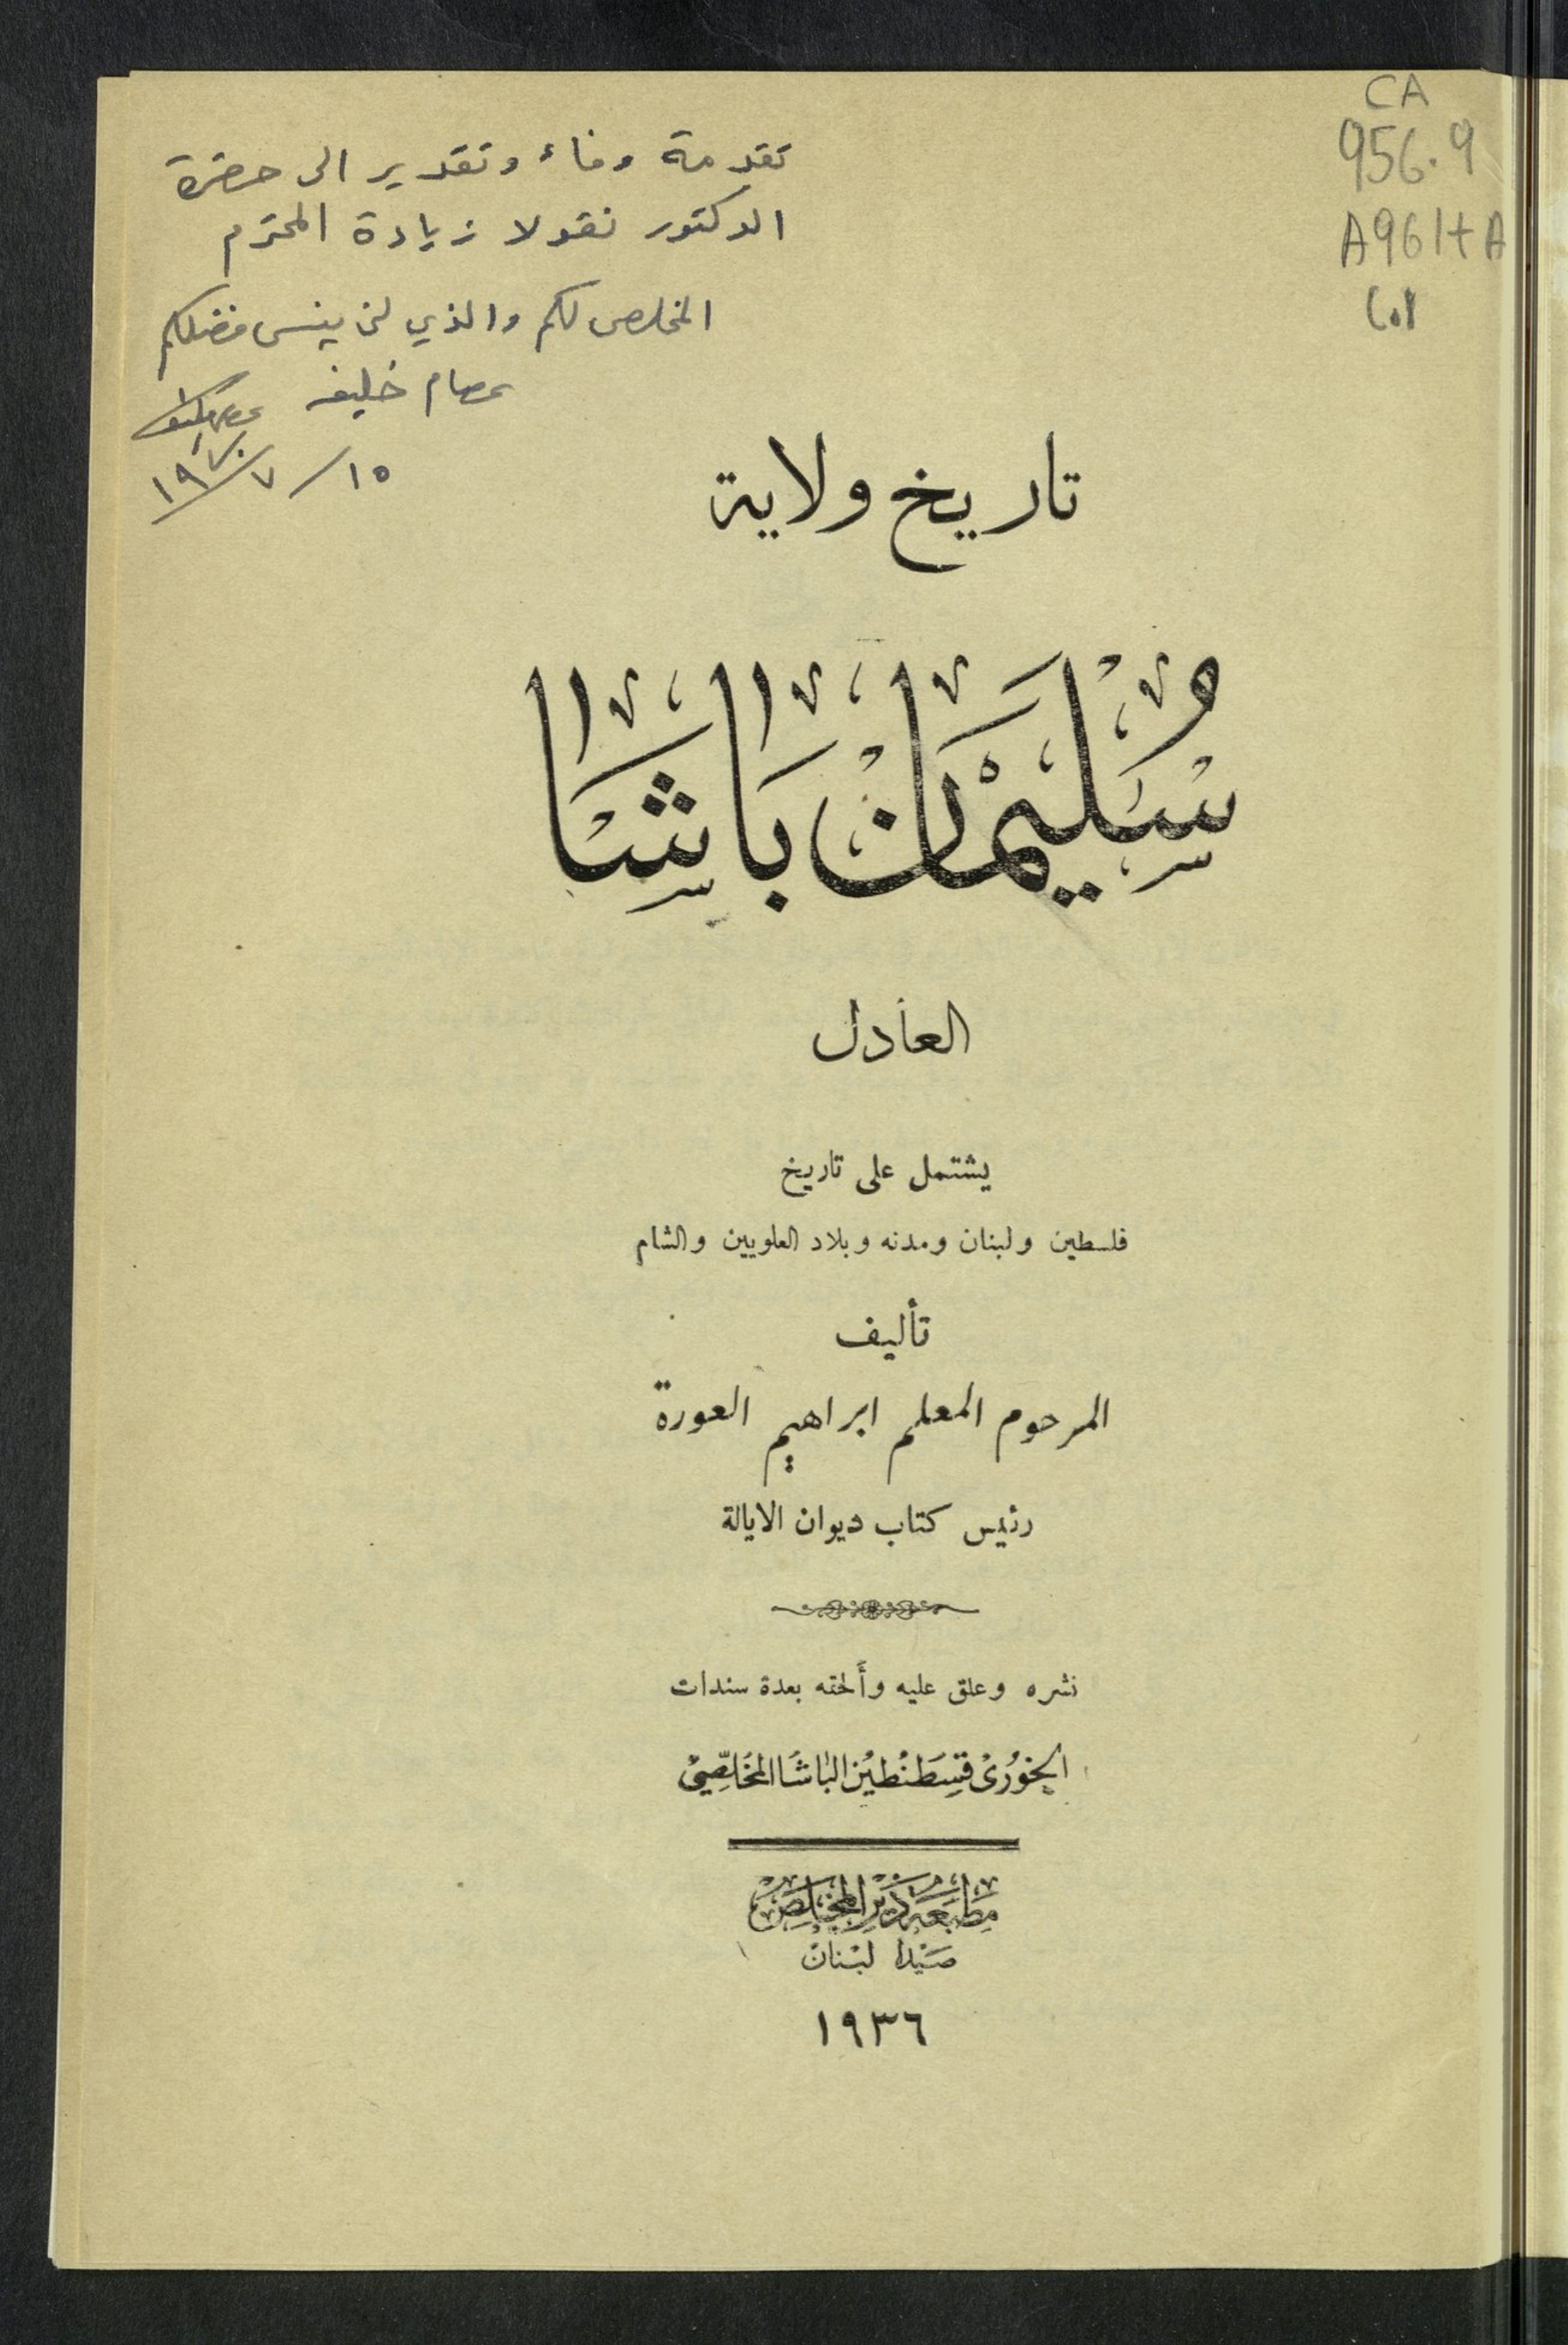 CA
956.9
A961tA
C.1
تقدمة وفاء وتقدير الى حضرة
الدكتور نقولا زيادة المحترم
المخلص لكم والذي لن ينسى فضلكم
عصام خليفه
١٥/٧/١٩٧٠
تاريخ ولاية
سُلَيْمَان بَاشَا
العادل
يشتمل على تاريخ
فلسطين ولبنان ومدنه وبلاد العلويين والشام
تأليف
المرحوم المعلم ابراهيم العورة
رئيس كتاب ديوان الايالة
نشره وعلق عليه وأَلحقه بعدة سندات
الخوُرىْ قسِطَنطيُن البَاشَا المخَلِّصِيْ
مَطبَعَة دَيْر المخَلِّصْ
صَيْدا لبْنان
١٩٣٦